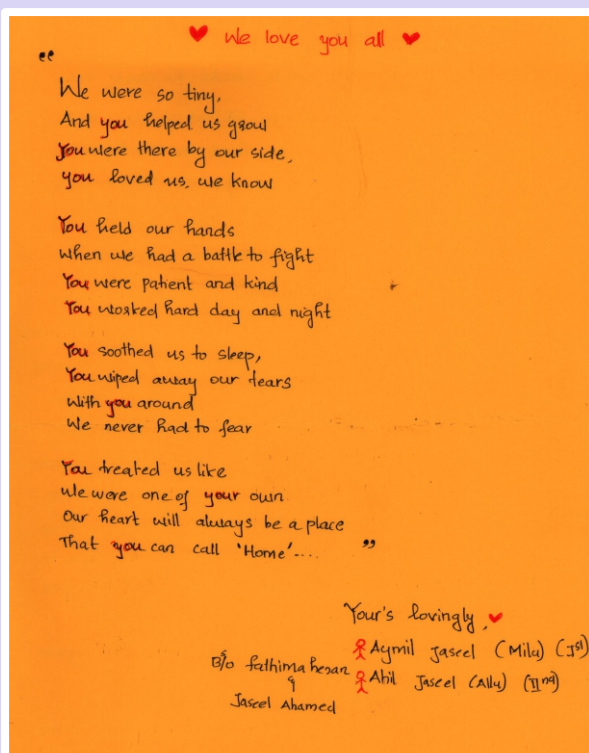 ♥ We love you all ♥
"
We were so tiny,
And you helped us grow
You were there by our side,
you loved us, we know
You held our hands
When we had a battle to fight
You were patient and kind
You worked hard day and night
You soothed us to sleep,
You wiped away our tears
With you around
We never had to fear
You treated us like
We were one of your own.
Our heart will always be a place
That you can call 'Home'.... "
Your's lovingly, ♥
Aymil Jaseel (Milu) (Ist)
B/o fathima hesan
Ahil Jaseel (Allu) (IInd)
&
Jaseel Ahamed